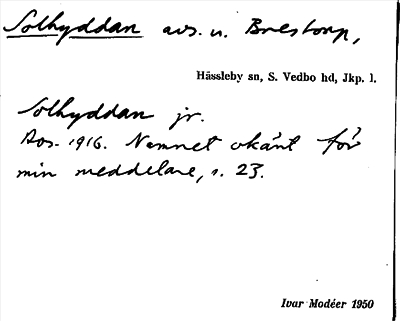 Solhyddan avs. u. Brestorp,
Hässleby sn, S. Vedbo hd, Jkp. l.
Solhyddan jr.
Avs. 1916. Namnet okänt för
min meddelare, s. 23.
Ivar Modéer 1950